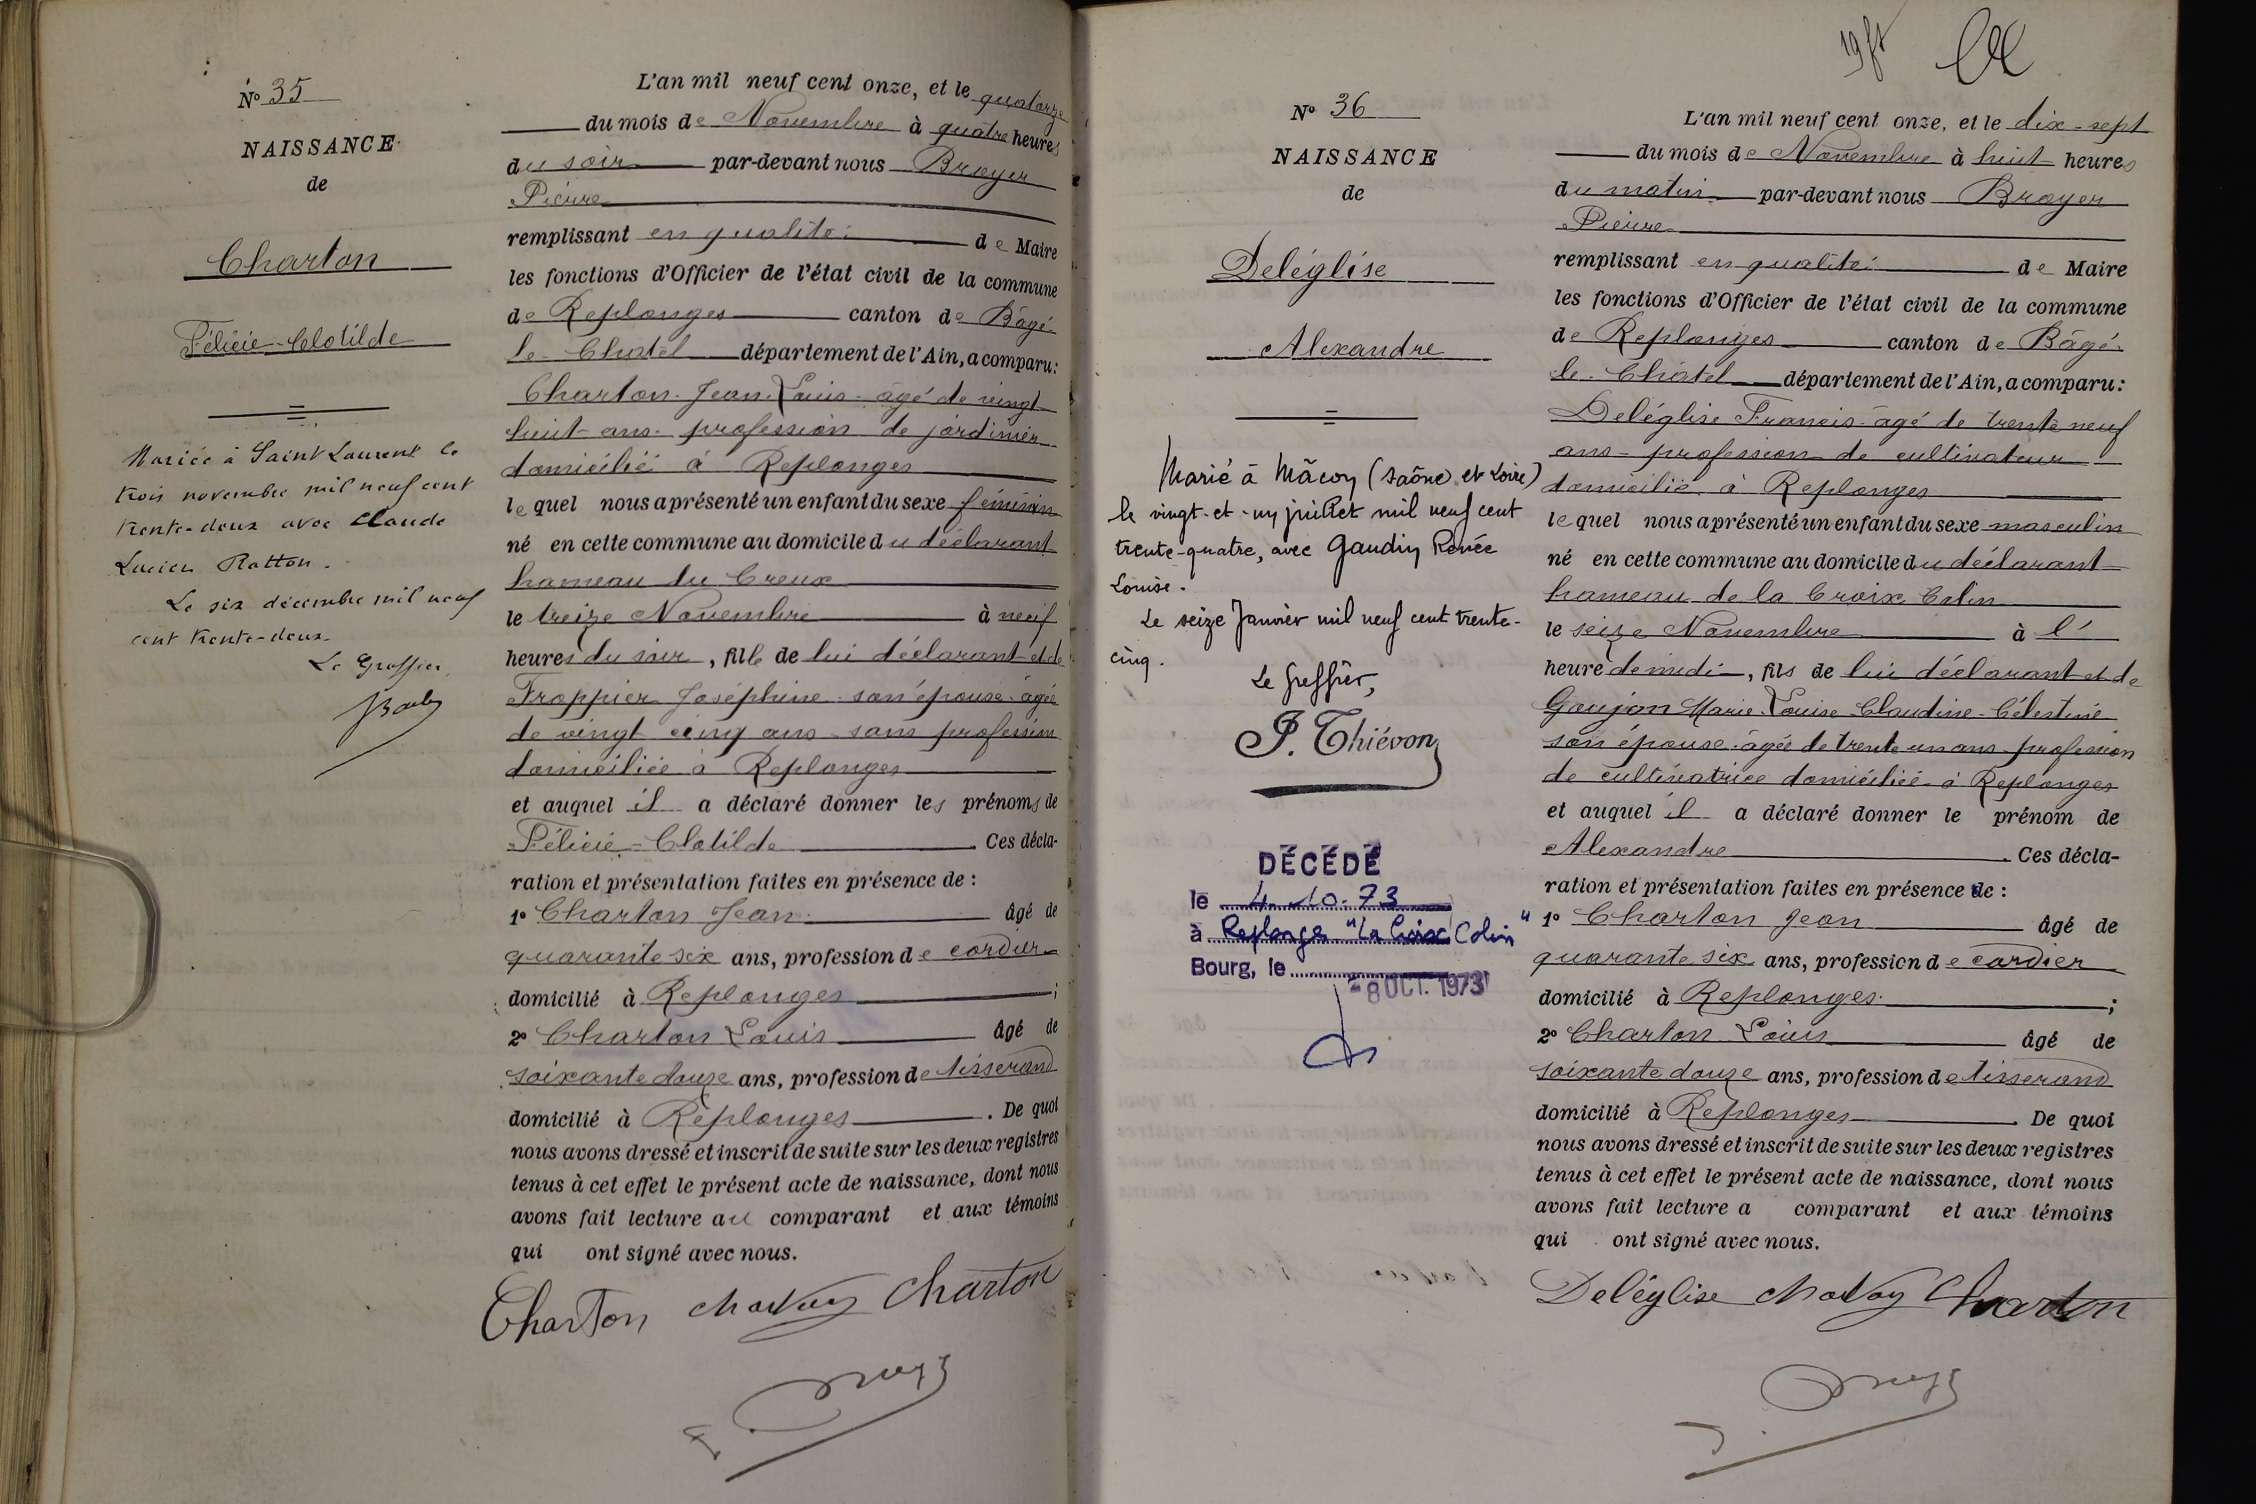 N° 35
NAISSANCE
de
Charton
Félicie-Clotilde
Mariée à Saint Laurent le
trois novembre mil neuf cent
trente-deux avec Claude
Lucien Ratton.
Le six décembre mil neuf
cent trente-deux
Le Greffier,
L'an mil neuf cent onze, et le quatorze
du mois de Novembre à quatre heures
du soir par-devant nous Broyer
Pierre
remplissant en qualité de Maire
les fonctions d'Officier de l'état civil de la commune
de Replonges canton de Bâgé
le Chatel département de l'Ain, a comparu:
Charton Jean Louis âgé de vingt
huit ans profession de jardinier
domicilié à Replonges
lequel nous a présenté un enfant du sexe féminin
né en cette commune au domicile du déclarant
hameau du Creux
le treize Novembre à neuf
heures du soir, fille de lui déclarant et de
Froppier Joséphine son épouse âgée
de vingt cinq ans sans profession
domiciliée à Replonges
et auquel il a déclaré donner les prénoms de
Félicie-Clotilde. Ces décla-
ration et présentation faites en présence de :
1° Charton Jean âgé de
quarante six ans, profession de cordier
domicilié à Replonges ;
2° Charton Louis âgé de
soixante douze ans, profession de tisserand
domicilié à Replonges. De quoi
nous avons dressé et inscrit de suite sur les deux registres
tenus à cet effet le présent acte de naissance, dont nous
avons fait lecture au comparant et aux témoins
qui ont signé avec nous.
Charton Charton
N° 36
NAISSANCE
de
Deléglise
Alexandre
Marié à Mâcon (Saône et Loire)
le vingt-et-un juillet mil neuf cent
trente-quatre, avec Gaudin Renée
Louise.
Le seize Janvier mil neuf cent trente-
cinq.
Le Greffier,
J. Thiévon
DÉCÉDÉ
le 4.10.73
à Replonges "La Croix Colin"
Bourg, le
- 8 OCT. 1973
L'an mil neuf cent onze, et le dix-sept
du mois de Novembre à huit heures
du matin par-devant nous Broyer
Pierre
remplissant en qualité de Maire
les fonctions d'Officier de l'état civil de la commune
de Replonges canton de Bâgé
le Châtel département de l'Ain, a comparu:
Deléglise Francis âgé de trente neuf
ans profession de cultivateur
domicilié à Replonges
lequel nous a présenté un enfant du sexe masculin
né en cette commune au domicile du déclarant
hameau de la Croix Colin
le seize Novembre à l'
heure de midi, fils de lui déclarant et de
Goujon Marie Louise Claudine Célestine
son épouse âgée de trente un ans profession
de cultivatrice domiciliée à Replonges
et auquel il a déclaré donner le prénom de
Alexandre. Ces décla-
ration et présentation faites en présence de :
1° Charton Jean âgé de
quarante six ans, profession de cordier
domicilié à Replonges ;
2° Charton Louis âgé de
soixante douze ans, profession de tisserand
domicilié à Replonges. De quoi
nous avons dressé et inscrit de suite sur les deux registres
tenus à cet effet le présent acte de naissance, dont nous
avons fait lecture a comparant et aux témoins
qui ont signé avec nous.
Deléglise Charton